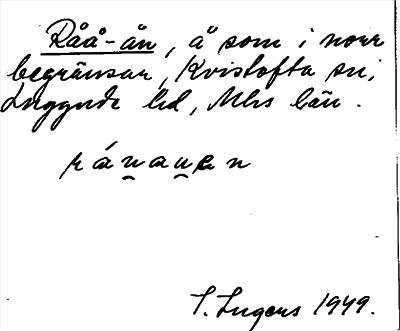 Råå-ån, å som i norr
begränsar, Kvistofta sn,
Luggude hd, Mhs län.
ránau̯en
I. Ingers 1949.